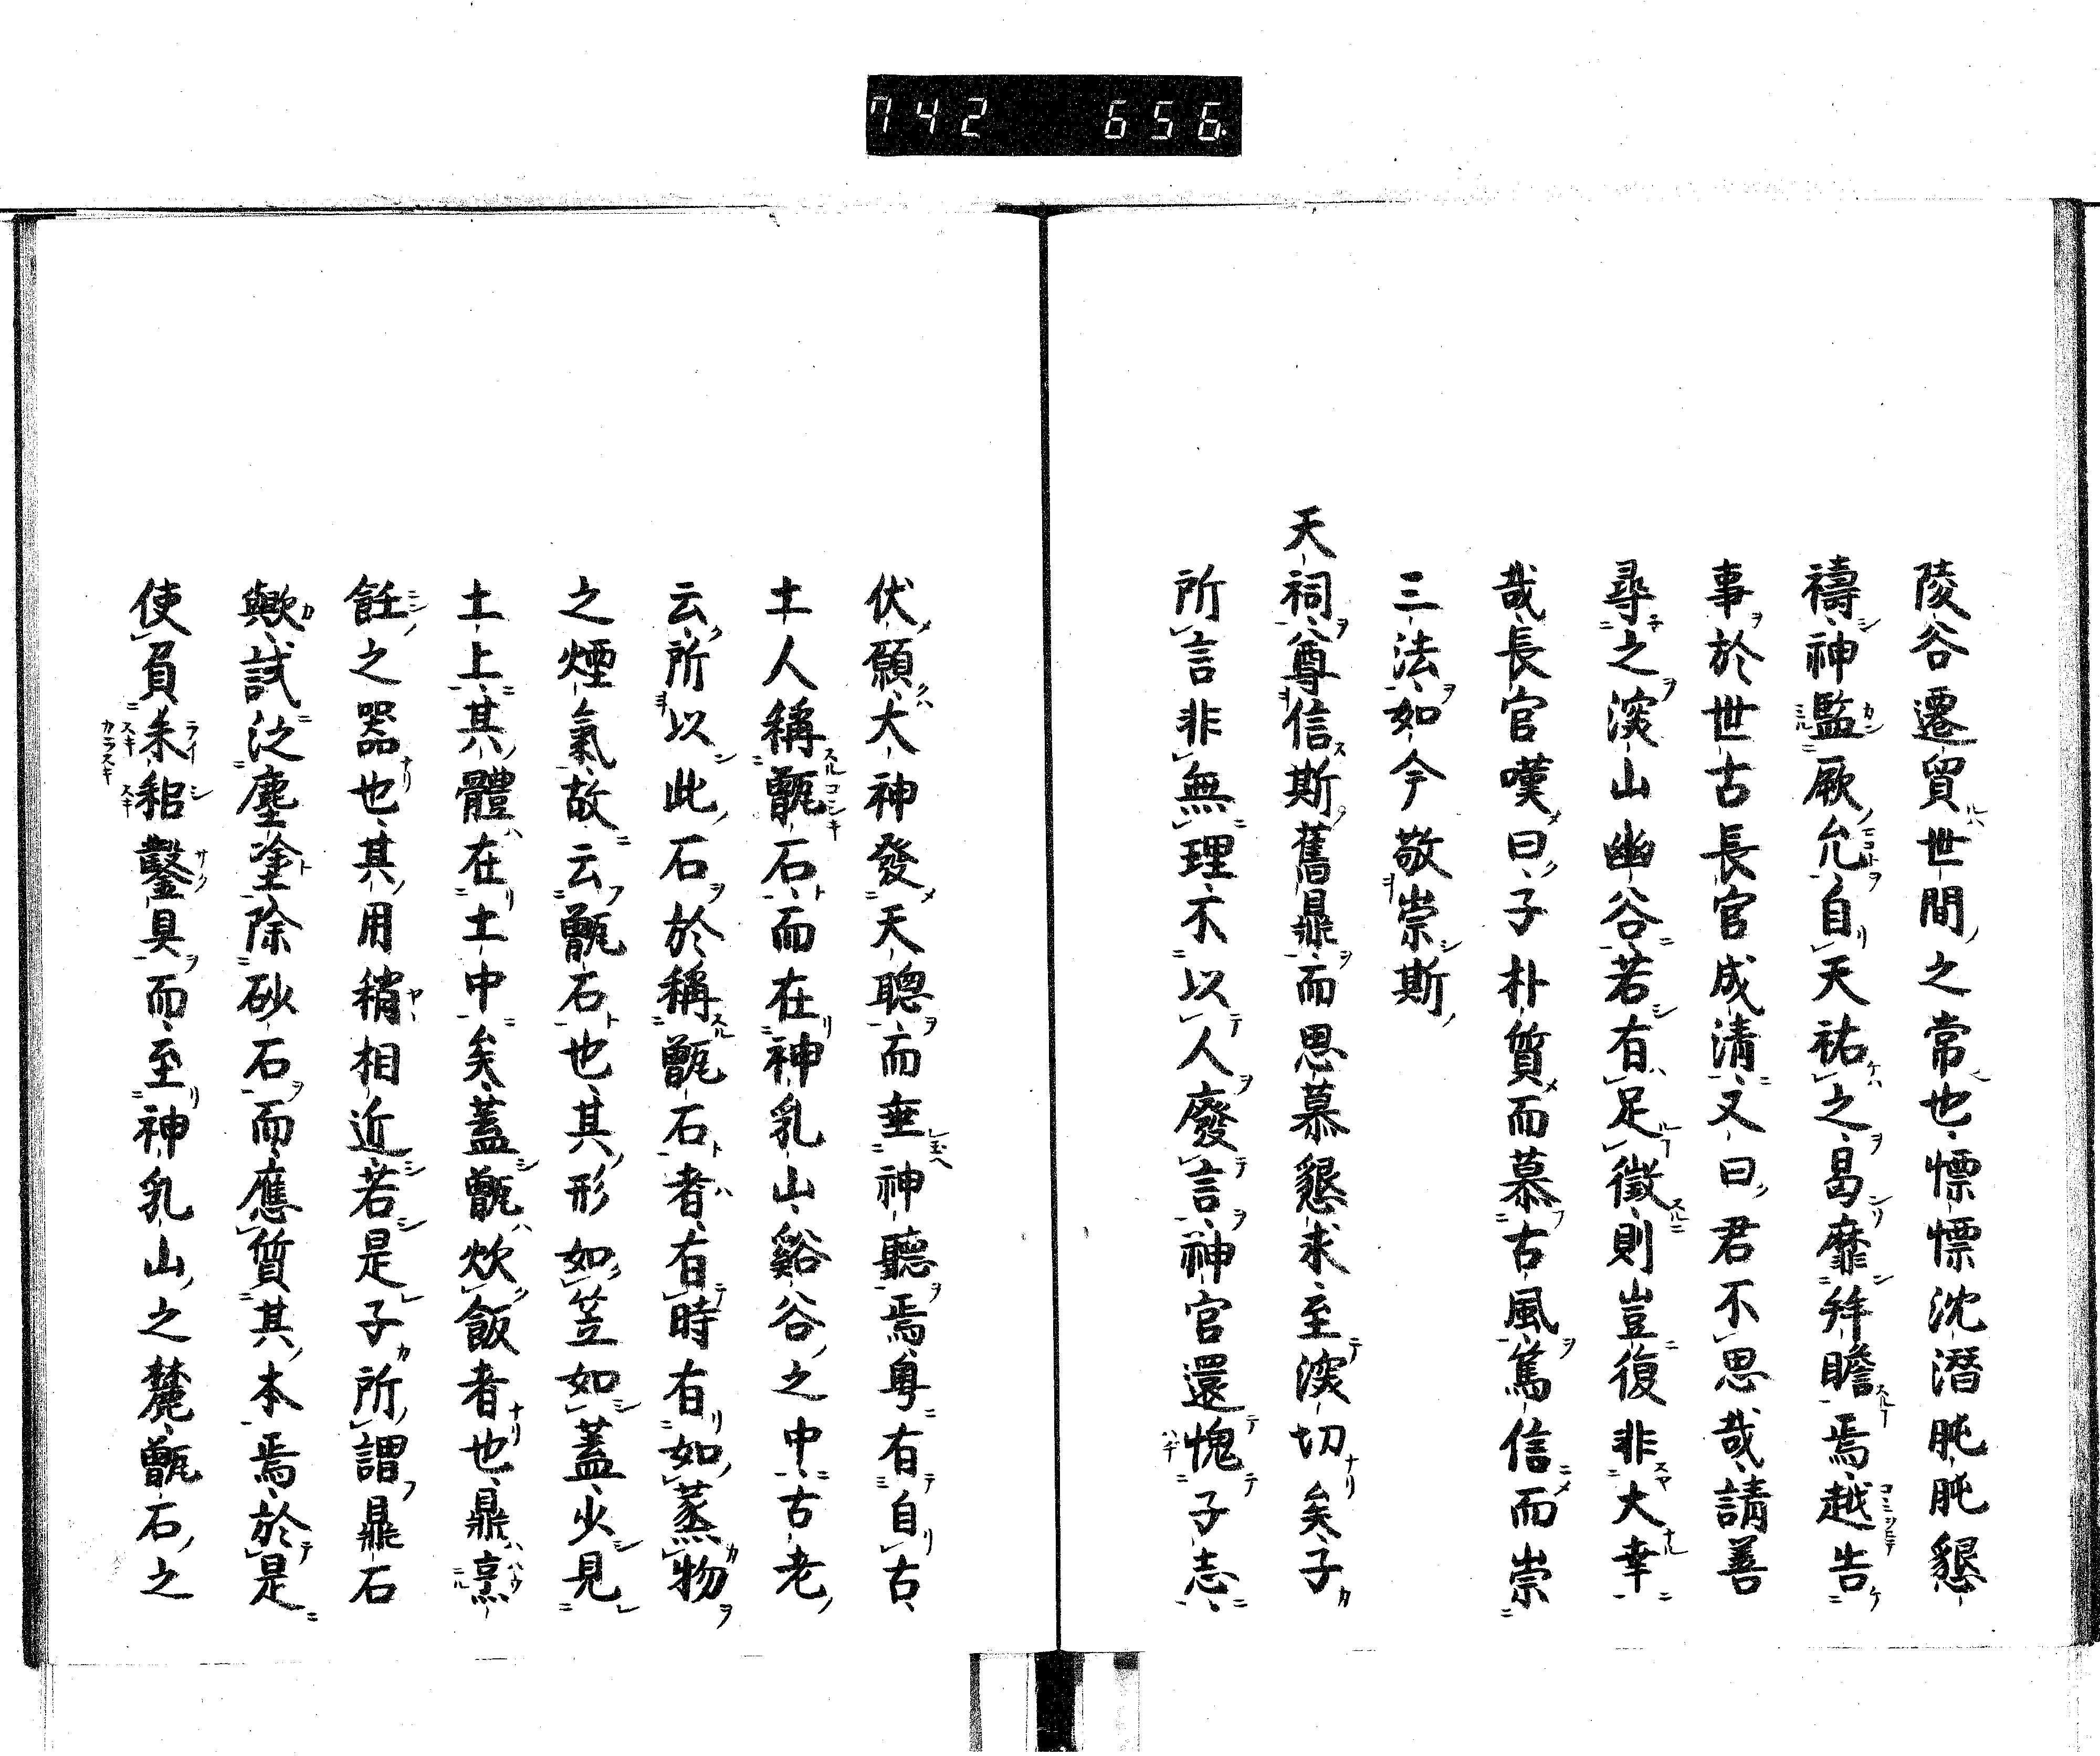 742 656
陵谷遷貿世間之常也慓慓沈潛肫肫懇
禱神監厥允自天祐之曷靡拜瞻焉越告
事於世古長官成清又曰君不思哉請善
尋之深山幽谷若有足徴則豈復非大幸
哉長官嘆曰子朴質而慕古風篤信而崇
三法如今敬崇斯
天祠尊信斯舊鼎而思慕懇求至深切矣子
所言非無理不以人廢言神官還愧子志
伏願大神發天聰而垂神聽焉粤有自古
土人稱甑石而在神乳山谿谷之中古老
云所以此石於稱甑石者有時有如蒸物
之煙氣故云甑石也其形如笠如蓋少見
土上其體在土中矣蓋甑炊飯者也鼎烹
飪之器也其用稍相近若是子所謂鼎石
歟試泛塵塗除砂石而應質其本焉於是
使負耒耜鑿具而至神乳山之麓甑石之